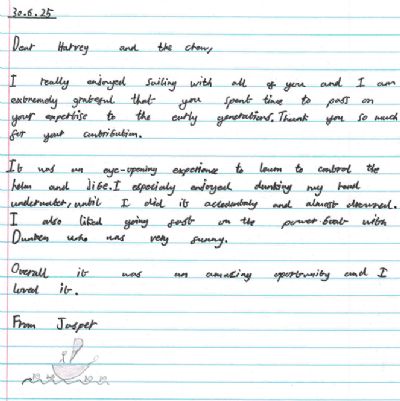 30.6.25
Dear Harvey and the crew,
I really enjoyed sailing with all of you and I am
extremely grateful that you spent time to pass on
your expertise to the early generations. Thank you so much
for your contribution.
It was an eye-opening experience to learn to control the
helm and jibe. I especialy enjoyed dunking my head
underwater, until I did it accedentaly and almost drowned.
I also liked going fast on the power boat with
Duncan who was very funny.
Overall it was an amazing oportunity and I
loved it.
From Jasper